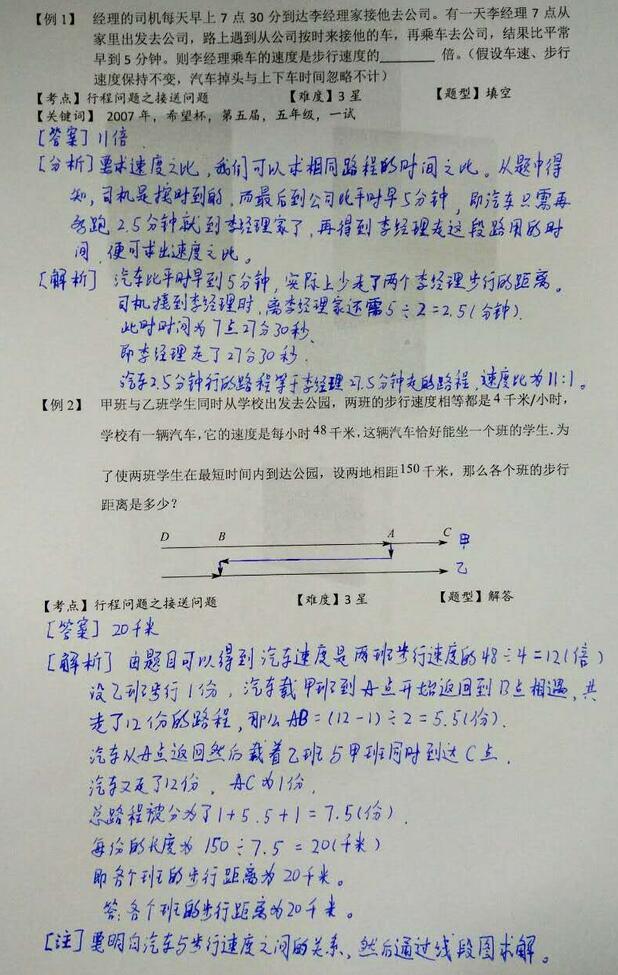 【例1】 经理的司机每天早上 7 点 30 分到达李经理家接他去公司。有一天李经理 7 点从
家里出发去公司，路上遇到从公司按时来接他的车，再乘车去公司，结果比平常
早到 5 分钟。则李经理乘车的速度是步行速度的________ 倍。（假设车速、步行
速度保持不变，汽车掉头与上下车时间忽略不计）
【考点】行程问题之接送问题 【难度】3 星 【题型】填空
【关键词】 2007 年，希望杯，第五届，五年级，一试
[答案] 11倍
[分析] 要求速度之比，我们可以求相同路程的时间之比。从题中得
知，司机是按时到的，而最后到公司比平时早5分钟，即汽车只需再
多跑 2.5分钟就到李经理家了，再得到李经理走这段路用的时
间，便可求出速度之比。
[解析] 汽车比平时早到5分钟，实际上少走了两个李经理步行的距离。
司机接到李经理时，离李经理家还需5÷2=2.5(分钟).
此时时间为7点27分30秒.
即李经理走了27分30秒.
汽车2.5分钟行的路程等于李经理27.5分钟走的路程，速度比为11:1。
【例2】 甲班与乙班学生同时从学校出发去公园，两班的步行速度相等都是 4 千米/小时，
学校有一辆汽车，它的速度是每小时 48 千米，这辆汽车恰好能坐一个班的学生．为
了使两班学生在最短时间内到达公园，设两地相距 150 千米，那么各个班的步行
距离是多少？
D B A C 甲
乙
【考点】行程问题之接送问题 【难度】3 星 【题型】解答
[答案] 20千米
[解析] 由题目可以得到汽车速度是两班步行速度的48÷4=12(倍)
设乙班步行1份，汽车载甲班到A点开始返回到B点相遇，共
走了12份的路程，那么AB=(12-1)÷2=5.5(份).
汽车从A点返回然后载着乙班与甲班同时到达C点.
汽车又走了12份，AC为1份.
总路程被分为了1+5.5+1=7.5(份).
每份的长度为 150÷7.5=20(千米)
即各个班的步行距离为20千米。
答:各个班的步行距离为20千米。
[注] 要明白汽车与步行速度之间的关系，然后通过线段图求解。